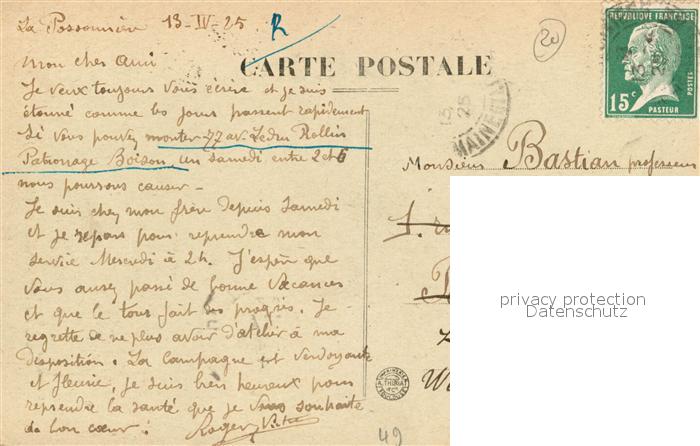 La Possonnière 13-IV-25 R
Mon cher Ami
CARTE POSTALE
Je veux toujours vous écrire et je suis
étonné comme les jours passent rapidement
Si vous pouvez monter 77 av. Ledru Rollin
Patronage Boison, un samedi entre 2 et 6
nous pourrons causer -
Je suis chez mon frère depuis Samedi
et je repars pour reprendre mon
service Mercredi à 2h. J'espère que
vous aurez passé de bonne Vacances
et que le tour fait des progrès. Je
regrette de ne plus avoir d'atelier à ma
disposition. La Campagne est verdoyante
et fleurie, je suis bien heureux pour
reprendre la santé que je vous souhaite
de bon cœur.
Roger
20
RÉPUBLIQUE FRANÇAISE
POSTES
15c
PASTEUR
25
Monsieur Bastian professeur
privacy protection
Datenschutz
49